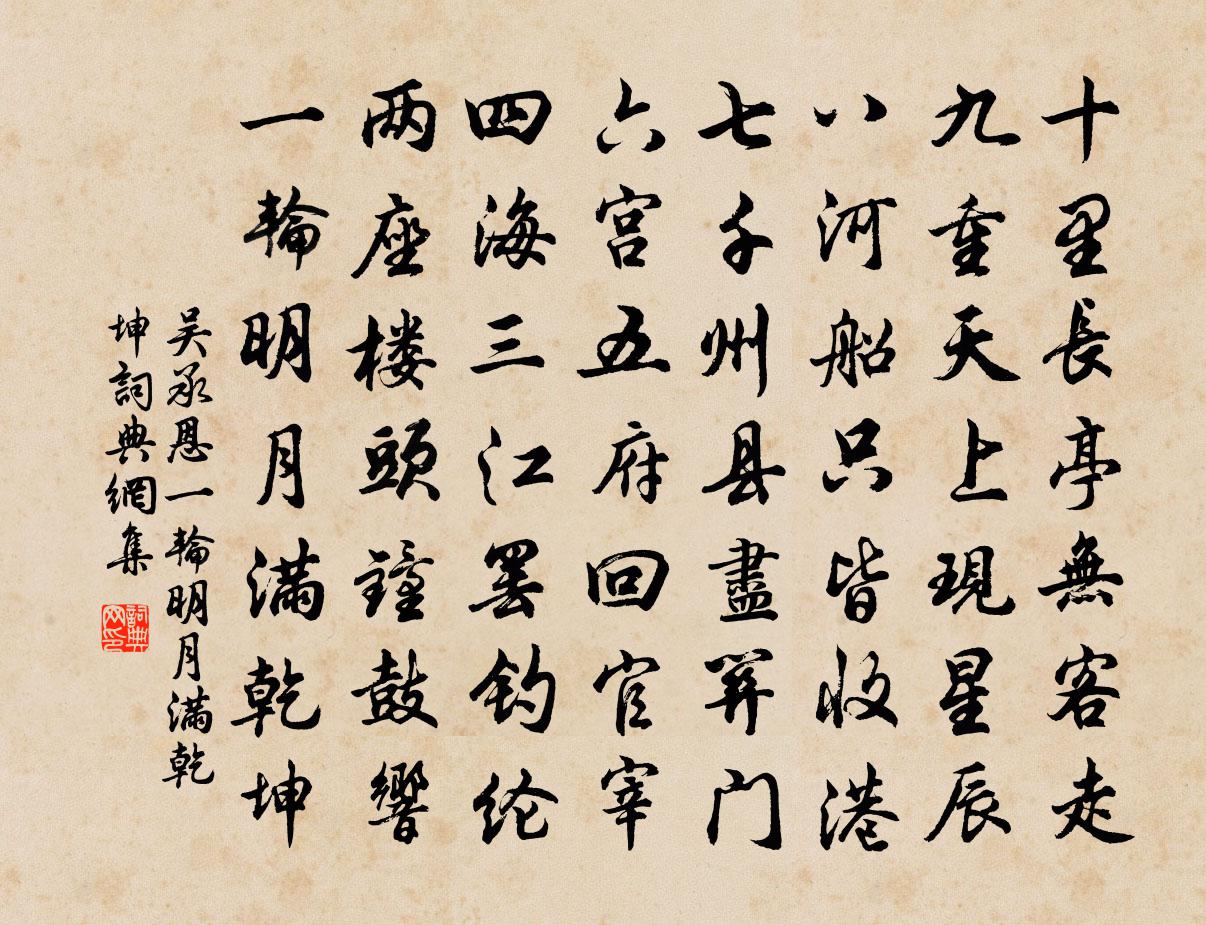 十里長亭無客走
九重天上現星辰
八河船只皆收港
七千州县盡關門
六宫五府回官宰
四海三江罢钓纶
两座楼頭鐘鼓響
一輪明月满乾坤
吴承恩一輪明月满乾
坤詞典網集
詞典网印